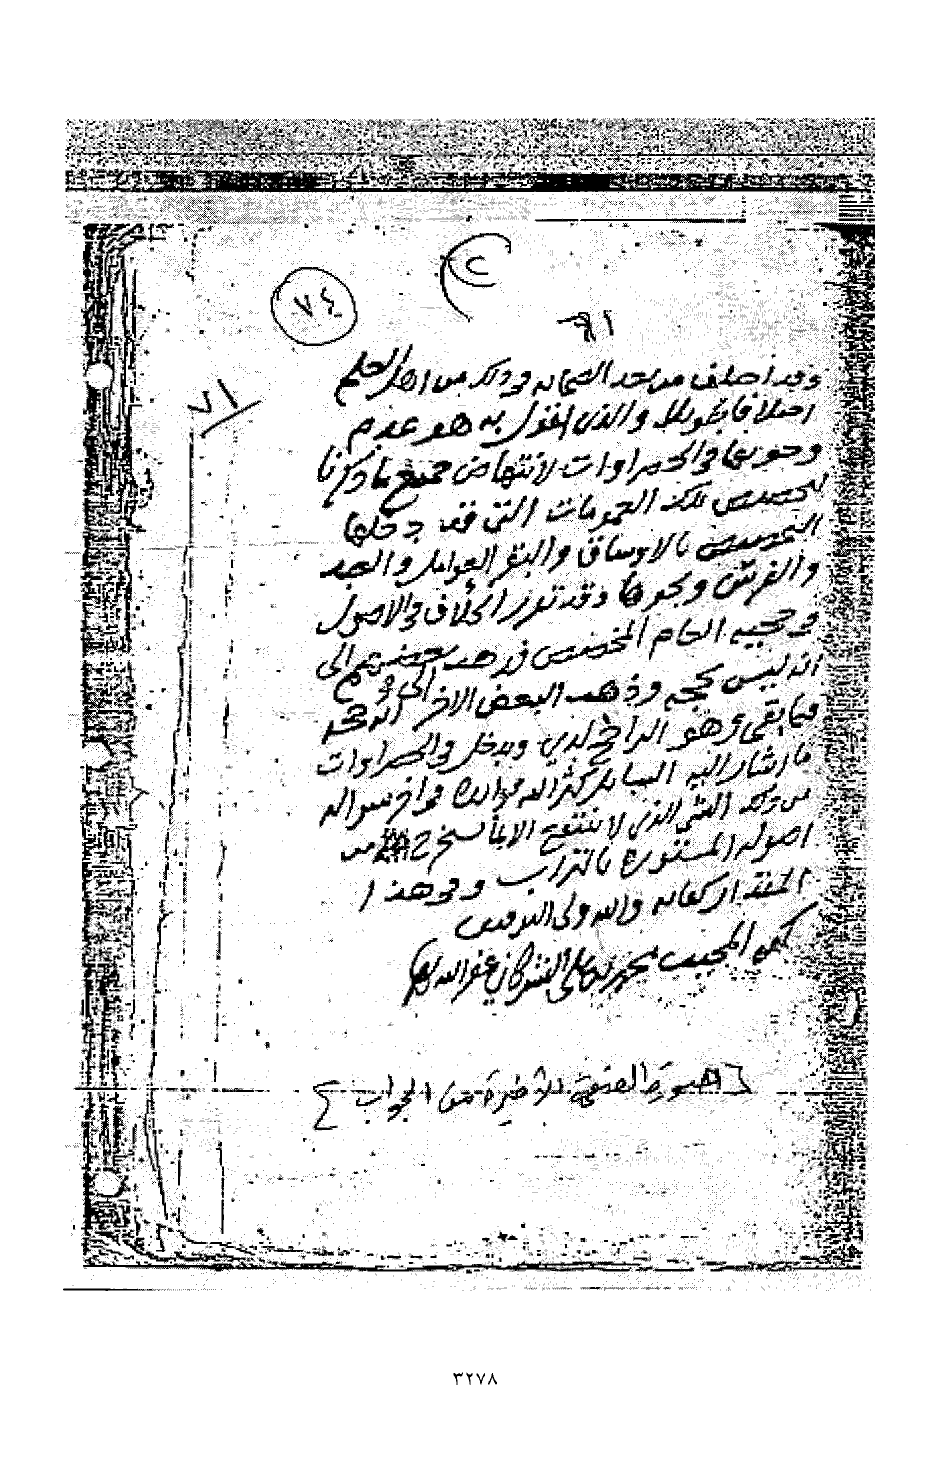 ٧٤
٧١
وقد اختلف من بعد الصحابة في ذلك من أهل العلم
اختلافا طويلا والذي أقول به هو عدم
وجوبها في الخضراوات لانتهاض جميع ما ذكرنا
لتخصيص تلك العمومات التي قد دخلها
التخصيص بالأوساق والبقر العوامل والعبد
والفرس ونحوها وقد تقرر الخلاف في الأصول
في حجية العام المخصص فذهب بعضهم إلى
أنه ليس بحجة وذهب البعض الآخر إلى أنه حجة
فيما بقي وهو الراجح لدي ويدخل في الخضراوات
ما أشار إليه السائل كثر الله فوائده في آخر سؤاله
من ذلك الشيء الذي لا ينتفع إلا بما من
أصوله المستورة بالتراب وفي هذا
المقدار كفاية والله ولي التوفيق
المجيب محمد بن علي الشوكاني غفر الله لهما
[صورة الصفحة الأخيرة من الجواب]
٣٢٧٨